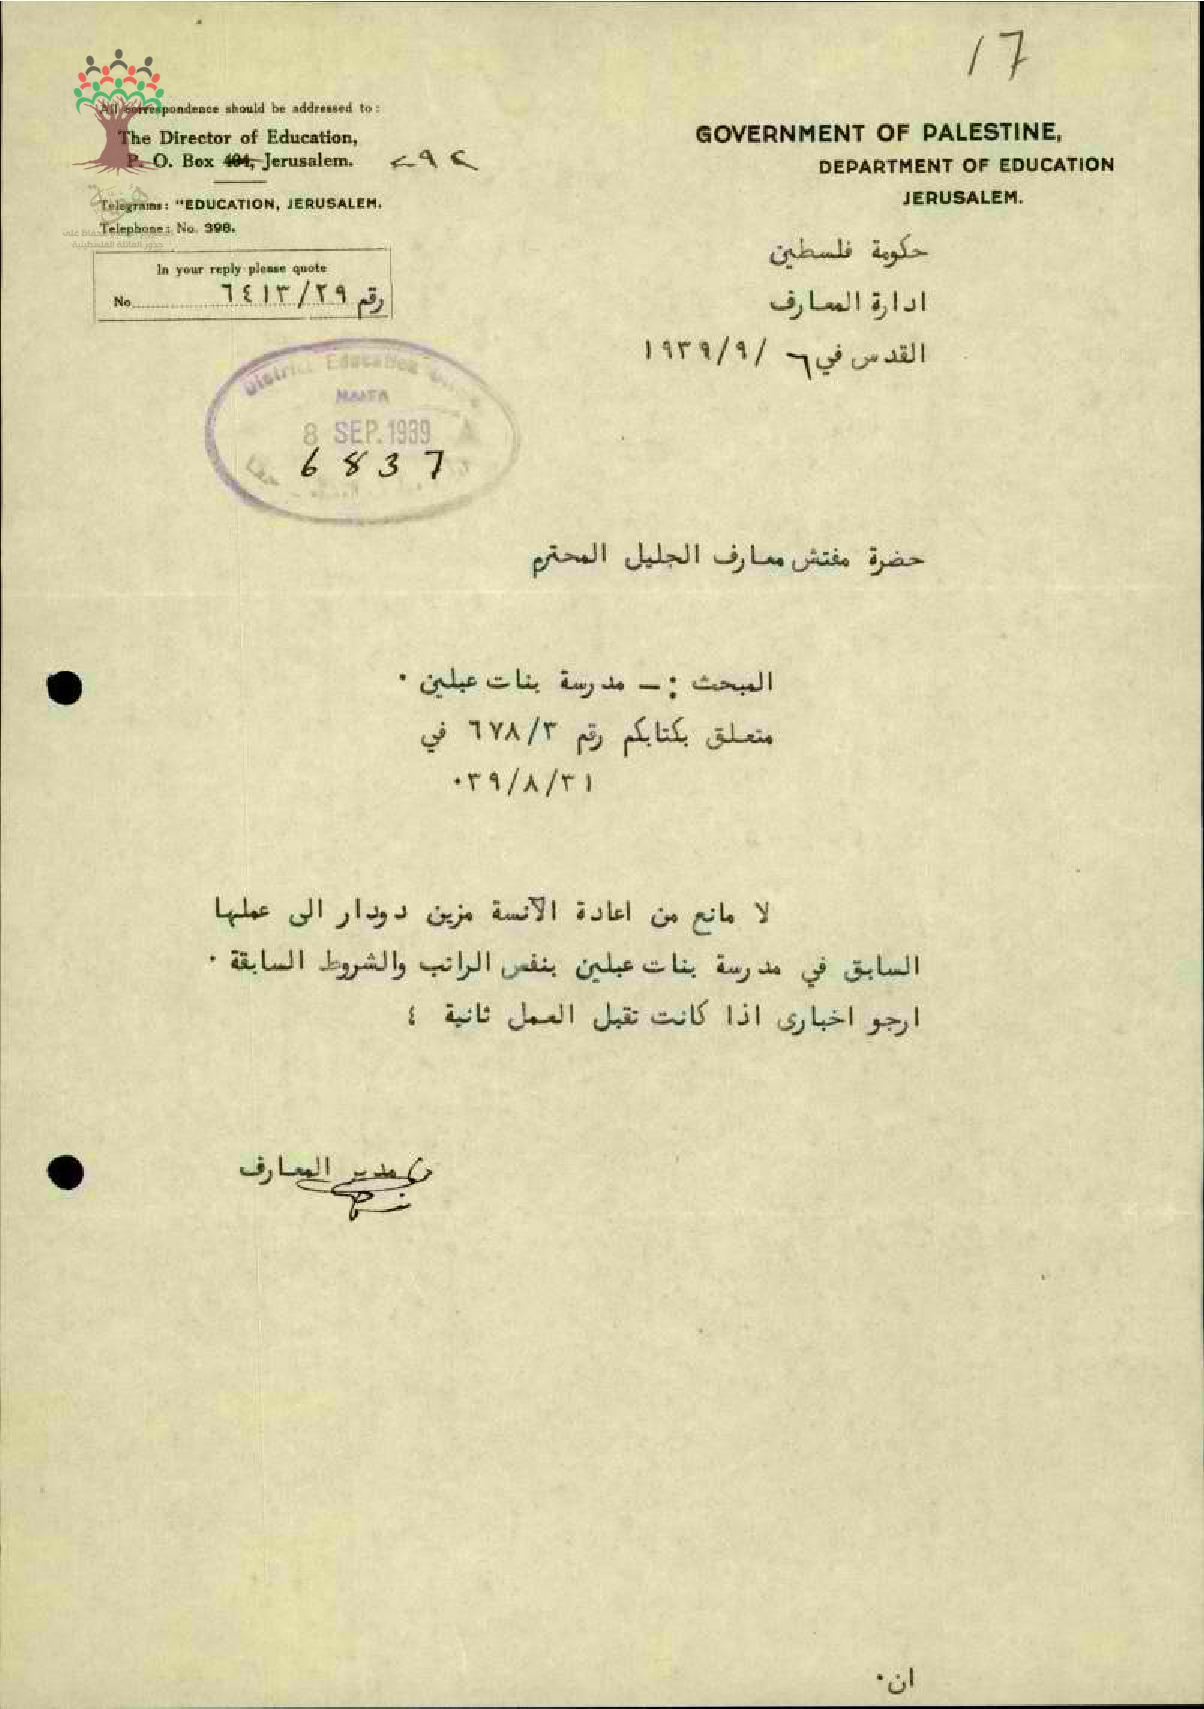 17
All correspondence should be addressed to:
The Director of Education,
P. O. Box 404, Jerusalem. ٢٩٢
Telegrams: "EDUCATION, JERUSALEM.
Telephone: No. 398.
In your reply please quote
No. رقم ٦٤١٣/٢٩
GOVERNMENT OF PALESTINE,
DEPARTMENT OF EDUCATION
JERUSALEM.
حكومة فلسطين
ادارة المعارف
القدس في ٦ /٩/١٩٣٩
District Education
HAIFA
8 SEP. 1939
6837
حضرة مفتش معارف الجليل المحترم
المبحث :ــ مدرسة بنات عبلين ٠
متعلق بكتابكم رقم ٦٧٨/٣ في
٣١/٨/٣٩٠
لا مانع من اعادة الآنسة مزين دودار الى عملها
السابق في مدرسة بنات عبلين بنفس الراتب والشروط السابقة ٠
ارجو اخبارى اذا كانت تقبل العمل ثانية ؟
مدير المعارف
ان٠